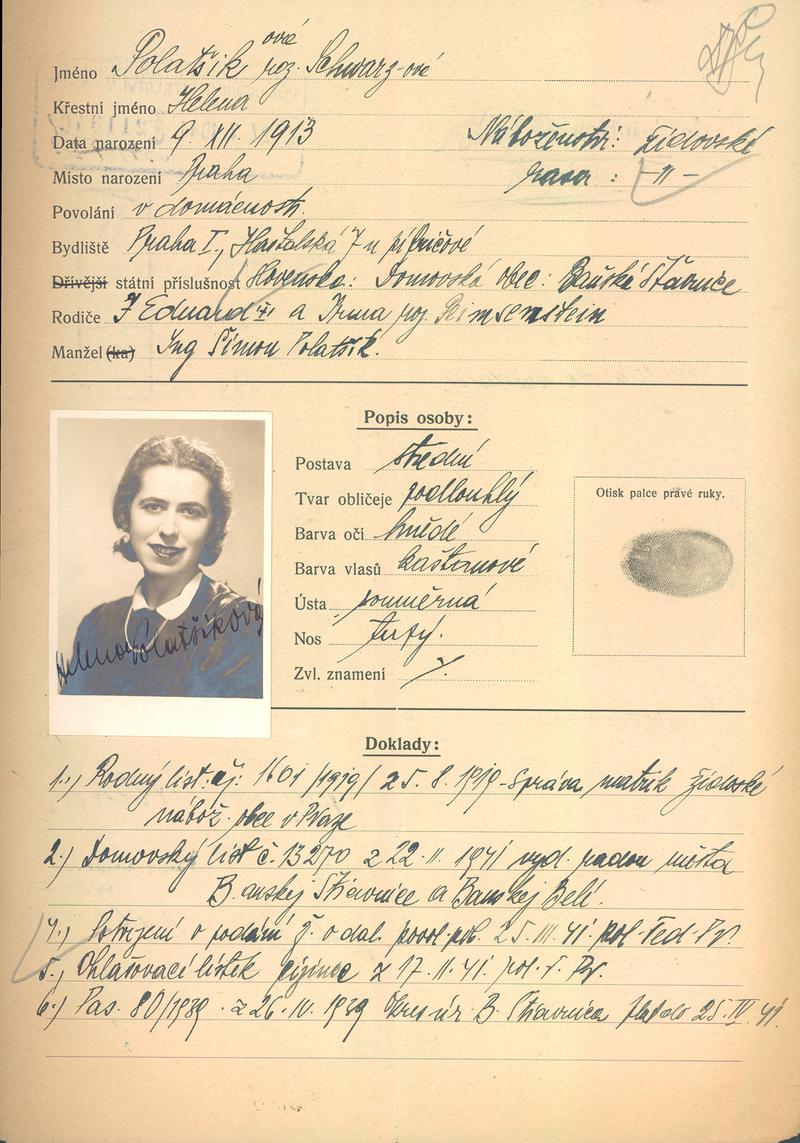 Jméno Polatšik ová roz. Schwarz-ová
Křestní jméno Helena
Data narození 9. XII. 1913 Náboženství: židovské
Místo narození Praha rasa: -"-
Povolání v domácnosti.
Bydliště Praha I, Haštalská 7 u
Dřívější státní příslušnost Slovensko: Domovská obec: Baňská Štavnice
Rodiče Ž Eduard a Irma roz. Reimsenstein
Manžel (ka) Ing Šimon Polatšik.
Popis osoby:
Postava střední
Tvar obličeje podlouhlý
Barva očí hnědé
Barva vlasů kaštanové
Ústa souměrná
Nos
Zvl. znamení
Otisk palce pravé ruky.
Helena Polatšiková
Doklady:
1.) Rodný list. čj: 1601/1919/ 25. 8. 1919 - Správa matrik židovské
nábož. obce v Praze
2.) Domovský list č. 13270 z 22. II. 1941 vyd. radou města
Banskej Štiavnice a Banskej Belí.
4.) Potvrzení o podání ž. o dal. povol. pob. 25. III. 41. pol. řed. Pr.
5.) Ohlašovací lístek cizince z 17. II. 41. pol. ř. Pr.
6.) Pas. 80/1939 z 26. IV. 1939 Okres. úr. B. Štiavnica plat do 25. IV. 41.